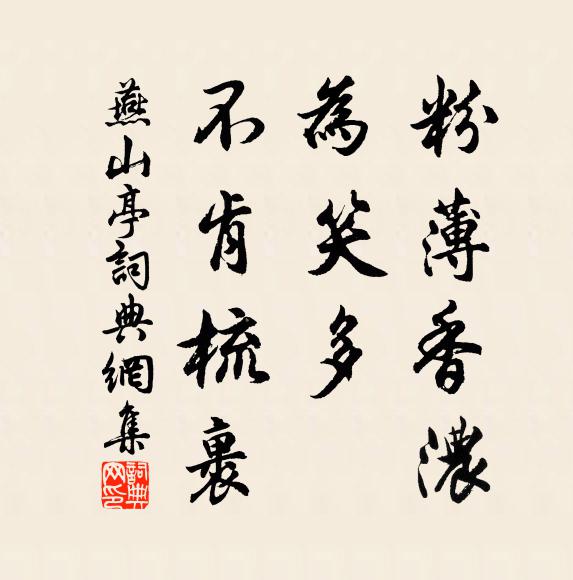 粉薄香濃
為笑多
不肯梳裹
燕山亭詞典網集
詞典網印